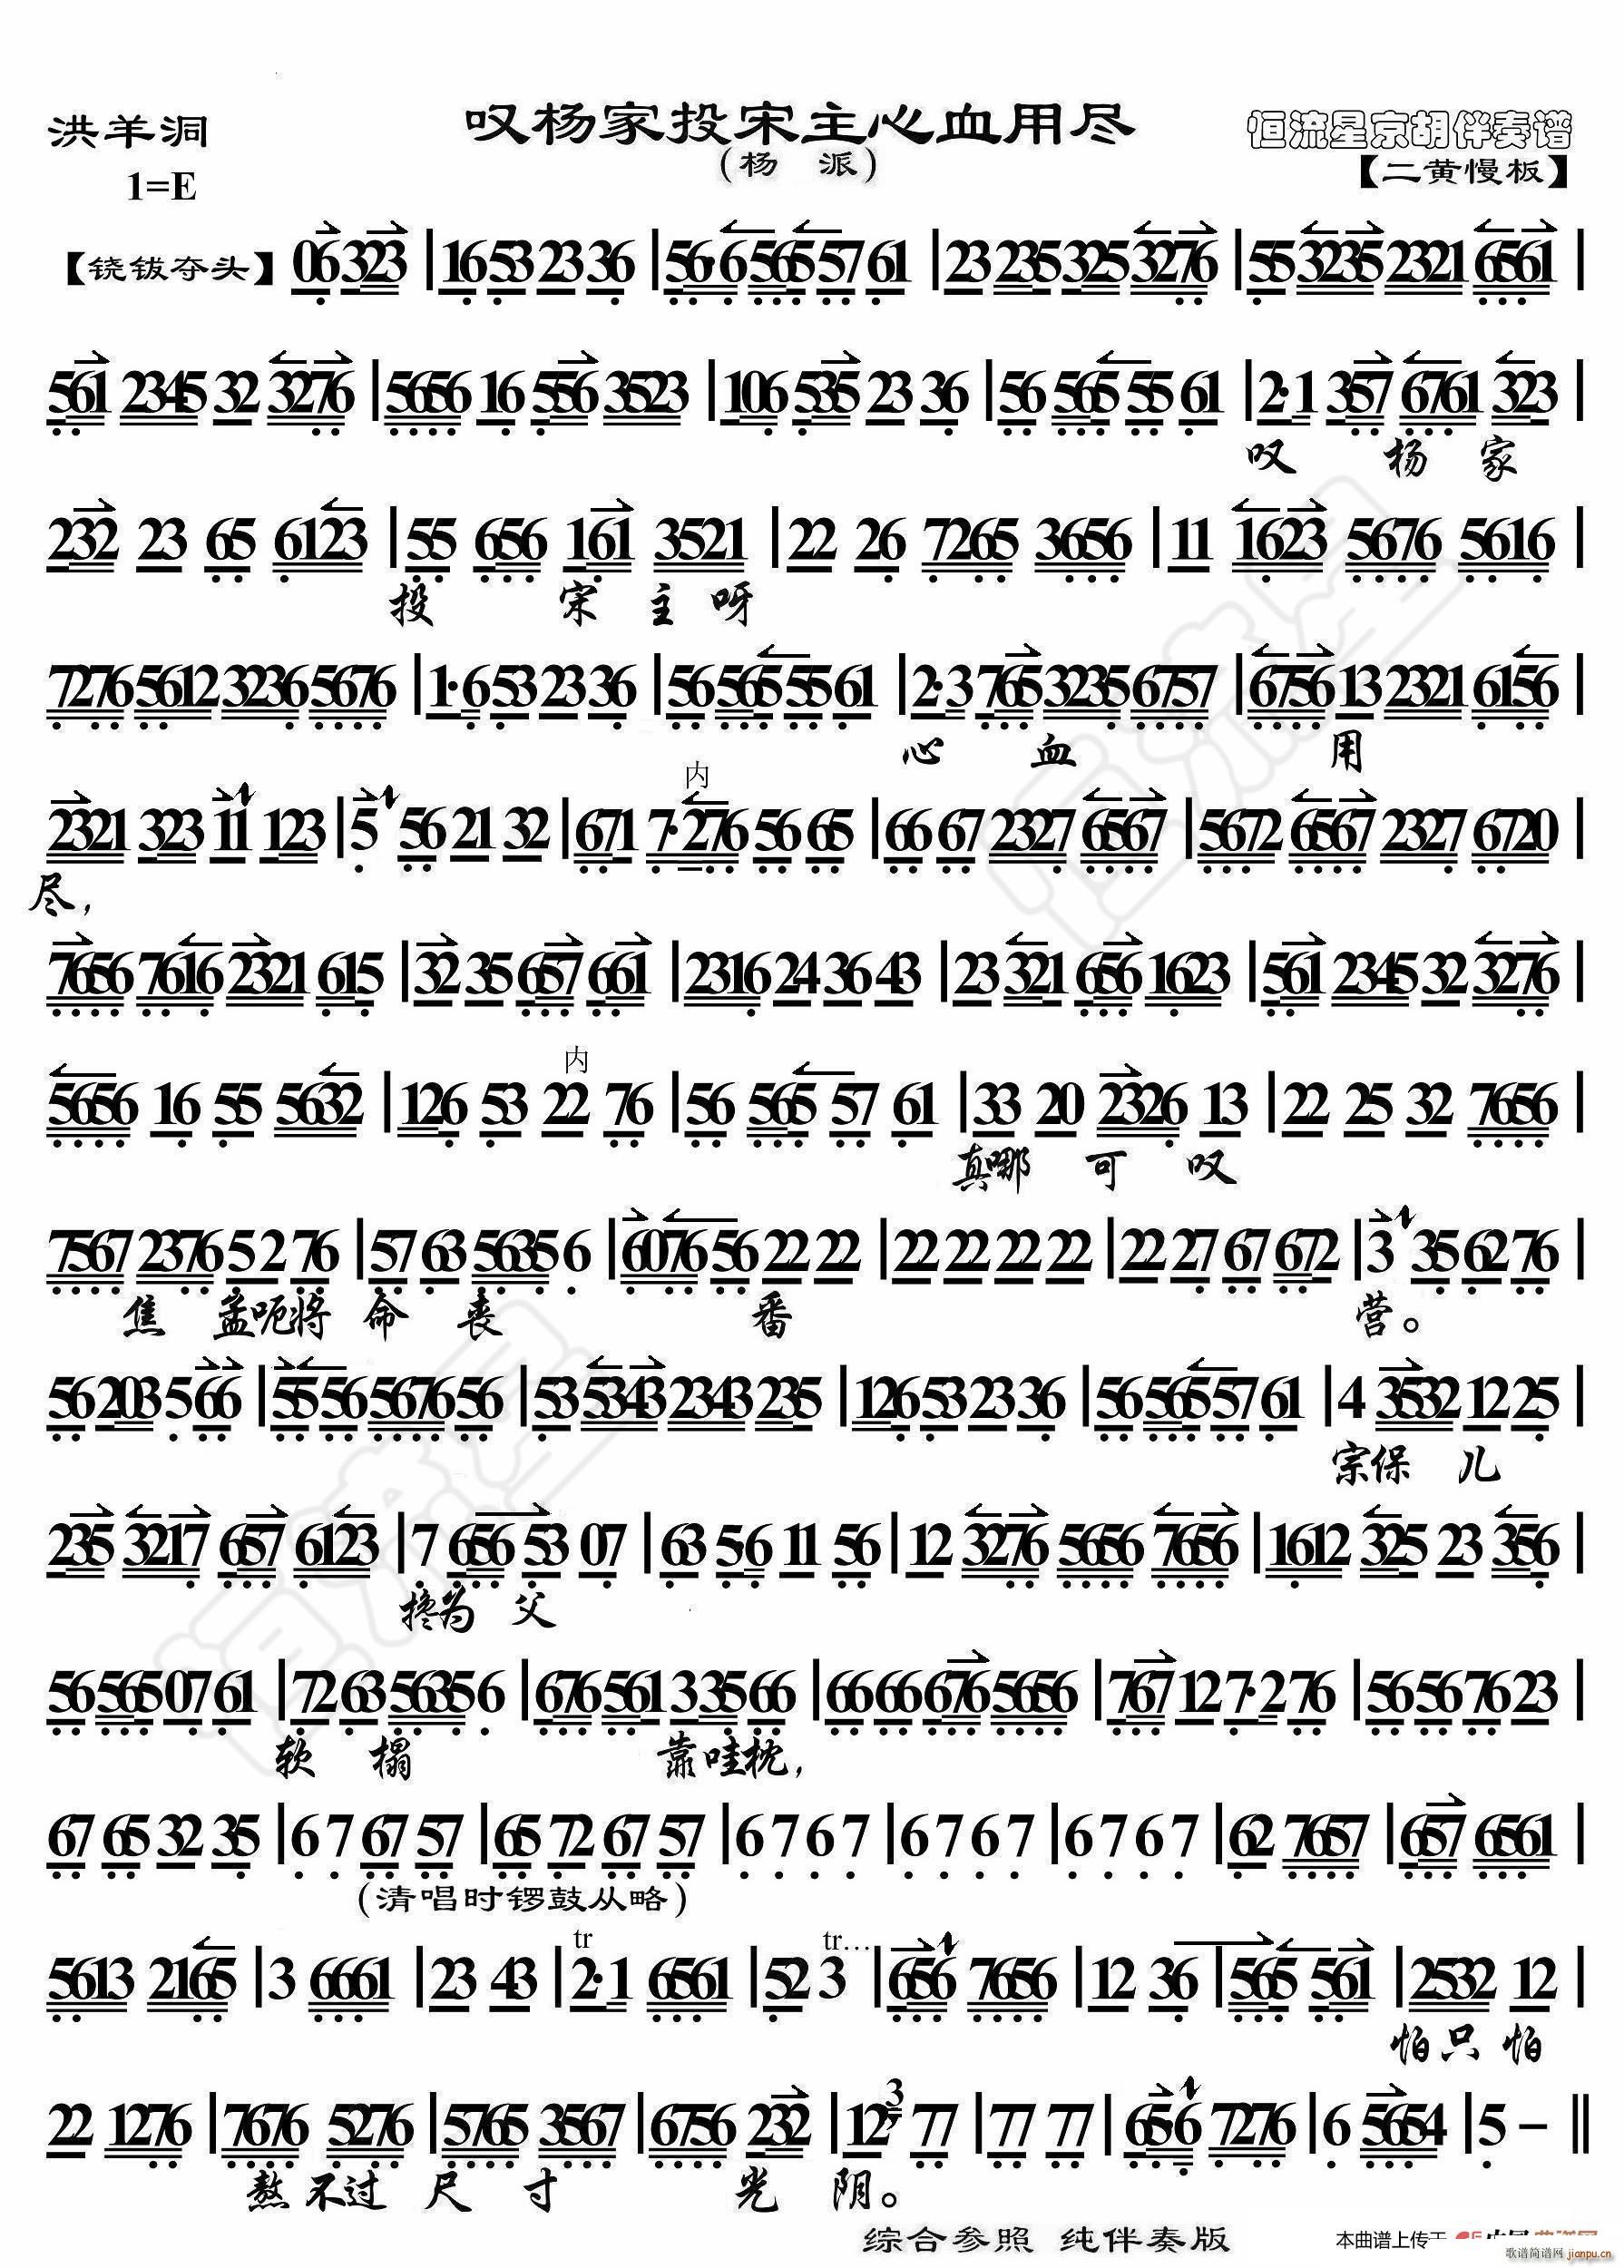 洪羊洞
叹杨家投宋主心血用尽
(杨 派)
恒流星京胡伴奏谱
1=E
【二黄慢板】
【铙钹夺头】 06 323 | 16 53 23 36 | 56·6 565 57 61 | 23 235 325 3276 | 55 3235 2321 6561 |
561 2345 32 3276 | 5656 16 556 3523 | 106 535 23 36 | 56 565 55 61 | 2·1 357 6761 323 |
叹 杨 家
232 23 65 6123 | 55 656 161 3521 | 22 26 7265 3656 | 11 1623 5676 5616 |
投 宋 主 呀
7276 5612 3236 5676 | 1·6 53 23 36 | 56 565 55 61 | 2·3 765 3235 6757 | 6756 13 2321 6156 |
心 血 用
内
2321 323 11 123 | 5 56 21 32 | 671 7·276 56 65 | 66 67 2327 6567 | 5672 6567 2327 6720 |
尽,
7656 7616 2321 615 | 32 35 657 661 | 2316 24 36 43 | 23 321 656 1623 | 561 2345 32 3276 |
内
5656 16 55 5632 | 126 53 22 76 | 56 565 57 61 | 33 20 2326 13 | 22 25 32 7656 |
真哪 可 叹
7567 2376 52 76 | 57 63 5635 6 | 6076 56 22 22 | 22 22 22 22 | 22 27 67 672 | 3 35 62 76 |
焦 孟呃将 命 丧 番 营。
56 203 5 66 | 55 56 5676 56 | 53 5343 2343 235 | 126 53 23 36 | 56 565 57 61 | 4 3532 12 25 |
宗保 儿
235 3217 657 6123 | 7 656 53 07 | 63 5·6 11 56 | 12 3276 5656 7656 | 1612 325 23 356 |
搀为 父
56 565 07 61 | 72 63 5635 6 | 676 561 335 66 | 66 66 676 5656 | 767 12 7·2 76 | 56 56 76 23 |
软 榻 靠哇枕,
67 65 32 35 | 6 7 67 57 | 65 72 67 57 | 6 7 6 7 | 6 7 6 7 | 6 7 6 7 | 62 7657 | 657 6561 |
(清唱时锣鼓从略)
tr tr…
5613 2165 | 3 6661 | 23 43 | 2·1 6561 | 52 3 | 656 7656 | 12 36 | 565 561 | 2532 12 |
怕只 怕
3
22 1276 | 7676 5276 | 5765 3567 | 6756 232 | 12 77 | 77 77 | 65·6 7276 | 6 5654 | 5 – ‖
熬 不过 尺 寸 光 阴。
综合参照 纯伴奏版
本曲谱上传于
歌谱简谱网 jianpu.cn
恒流星
恒流星